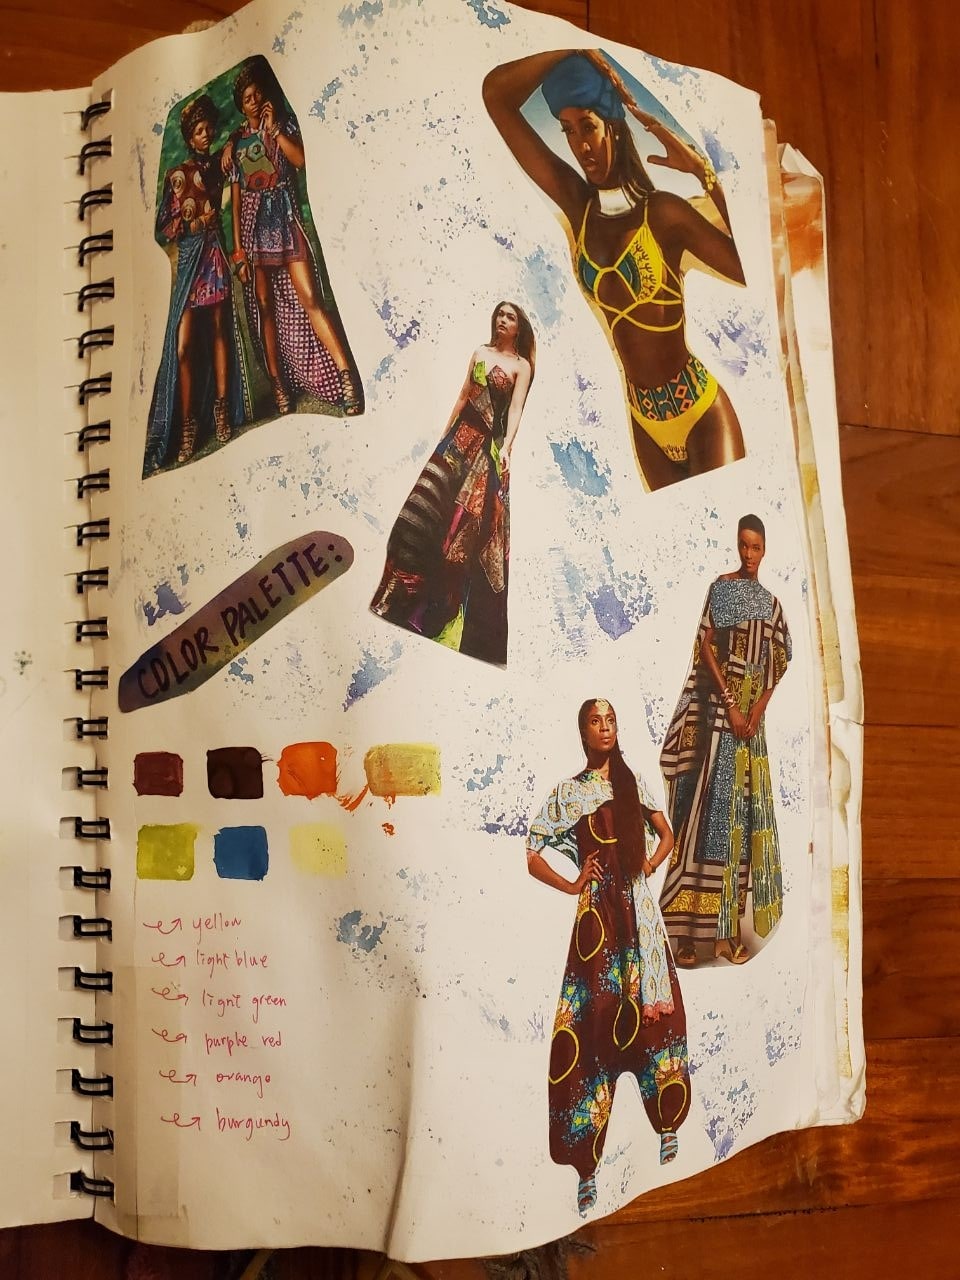 COLOR PALETTE:
yellow
light blue
light green
purple red
orange
burgundy